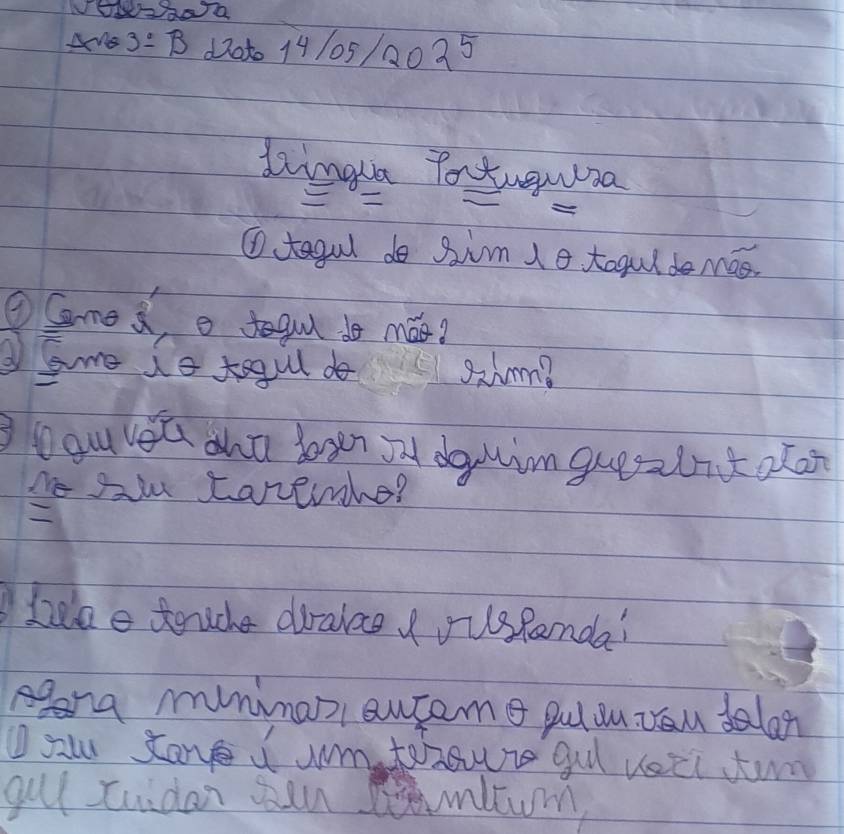 Professora
Ano 3º B Data 14/05/2025
Língua Portuguesa
① toque do sim e o toque do não.
① Como é, o toque do não?
② Como é o toque do sim?
3 O que você deve fazer se alguém quiser tocar
no seu carrinho?
Leia o trecho abaixo e responda:
Agora meninas, ouçam o que eu vou falar
O seu corpo é um tesouro que você tem
que cuidar seu